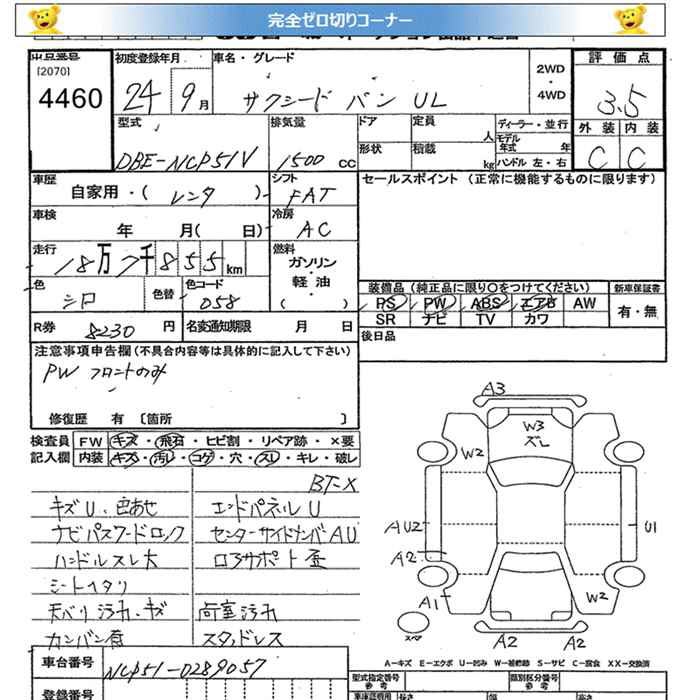 完全ゼロ切りコーナー
出品番号 初度登録年月 車名・グレード 2WD ・ 4WD 評価点
[2070]
4460 24 9月 サクシード バン UL 3.5
型式 排気量 ドア 定員 人 ディーラー・並行 外装 内装
モデル年式 年
DBE-NCP51V 1500 CC 形状 積載 kg ハンドル 左・右 C C
車歴 自家用・( レンタ ) シフト FAT セールスポイント (正常に機能するものに限ります)
車検 年 月( 日) 冷房 AC
走行 18万7千855km 燃料 ガソリン・軽油・( )
色 シロ 色替 色コード 058
装備品 (純正品に限り○をつけてください) 新車保証書
PS PW ABS エアB AW 有・無
SR ナビ TV カワ
R券 8230 円 名変通知期限 月 日 後日品
注意事項申告欄(不具合内容等は具体的に記入して下さい)
PW フロントのみ
修復歴 有 〔箇所 〕
検査員 FW キズ・飛石・ヒビ割・リペア跡・×要
記入欄 内装 キズ・汚レ・コゲ・穴・スレ・キレ・破レ
BT-X
キズU、色あせ エンドパネルU
ナビパスワードロック センターサイドメンバAU
ハンドルスレ大 ロアサポート
シートヘタリ
天バリ汚れ・キズ 荷室汚れ
カンバン スタッドレス
車台番号 NCP51-0289057
登録番号
A3
W3
ズレ
W2
AU2
U1
A2
A1
W2
スペア
A2 A2
A-キズ E-エクボ U-凹み W-補修跡 S-サビ C-腐食 XX-交換済
型式指定番号 参考 類別区分番号 参考
長さ 幅 高さ